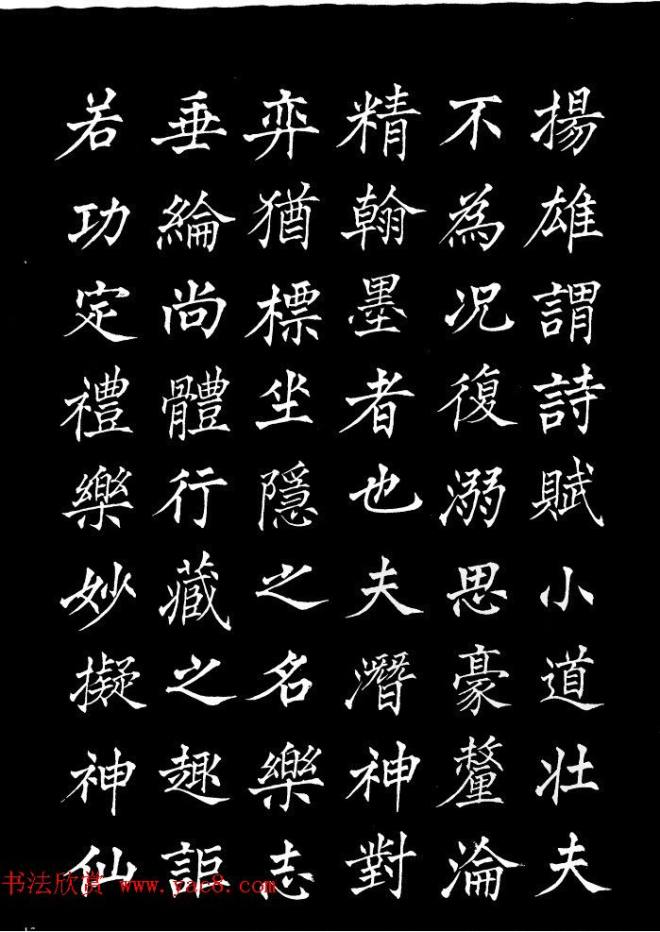 揚雄謂詩賦小道壯夫
不為况復溺思豪釐淪
精翰墨者也夫潛神對
弈猶標坐隱之名樂志
垂綸尚體行藏之趣詎
若功定禮樂妙擬神仙
书法欣赏 www.yac8.com